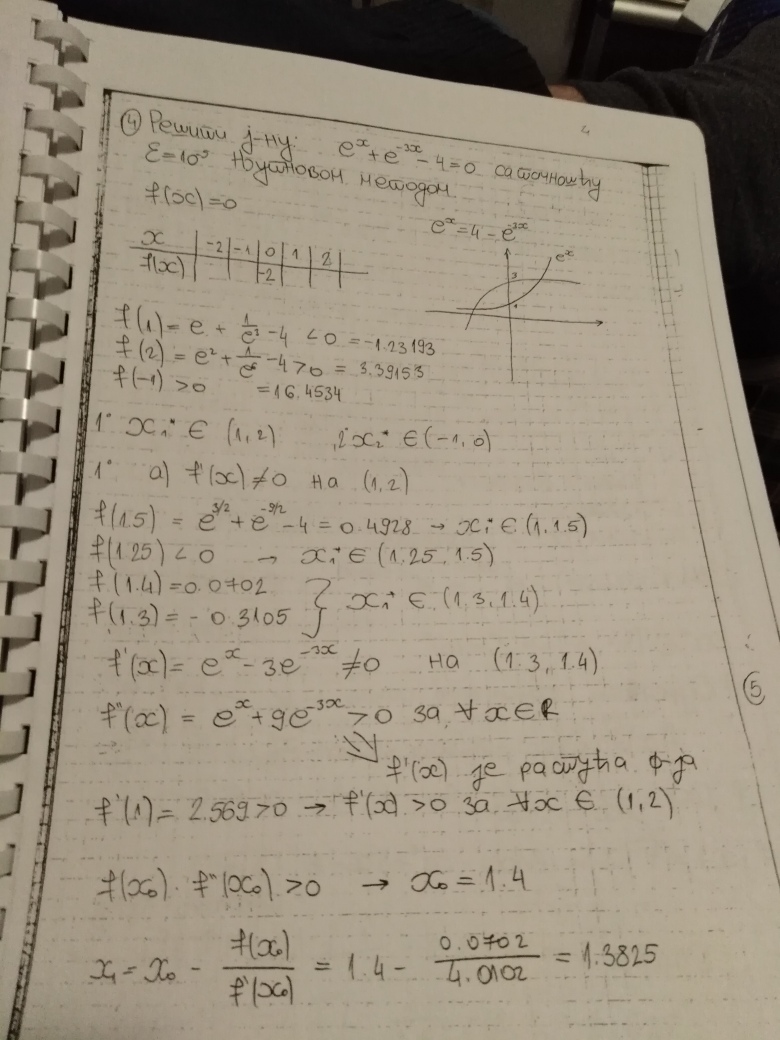 4
④ Решити ј-ну: e^x + e^{-3x} - 4 = 0 са тачношћу
ε = 10^{-5} Њутновом методом.
f(x) = 0
e^x = 4 - e^{-3x}
x | -2 | -1 | 0 | 1 | 2
f(x) | | | -2 | |
e^x
3
1
f(1) = e + 1/e^3 - 4 < 0 = -1.23193
f(2) = e^2 + 1/e^6 - 4 > 0 = 3.39153
f(-1) > 0 = 16.4534
1° x₁* ∈ (1,2) 2° x₂* ∈ (-1,0)
1° a) f'(x) ≠ 0 на (1,2)
f(1.5) = e^{3/2} + e^{-9/2} - 4 = 0.4928 → x₁* ∈ (1,1.5)
f(1.25) < 0 → x₁* ∈ (1.25, 1.5)
f(1.4) = 0.0702
f(1.3) = -0.3105 } x₁* ∈ (1.3, 1.4)
f'(x) = e^x - 3e^{-3x} ≠ 0 на (1.3, 1.4)
f''(x) = e^x + 9e^{-3x} > 0 за ∀x∈R
⇓ f'(x) је растућа ф-ја
⑤
f'(1) = 2.569 > 0 → f'(x) > 0 за ∀x ∈ (1,2)
f(x₀) · f''(x₀) > 0 → x₀ = 1.4
x₁ = x₀ - f(x₀)/f'(x₀) = 1.4 - 0.0702/4.0102 = 1.3825